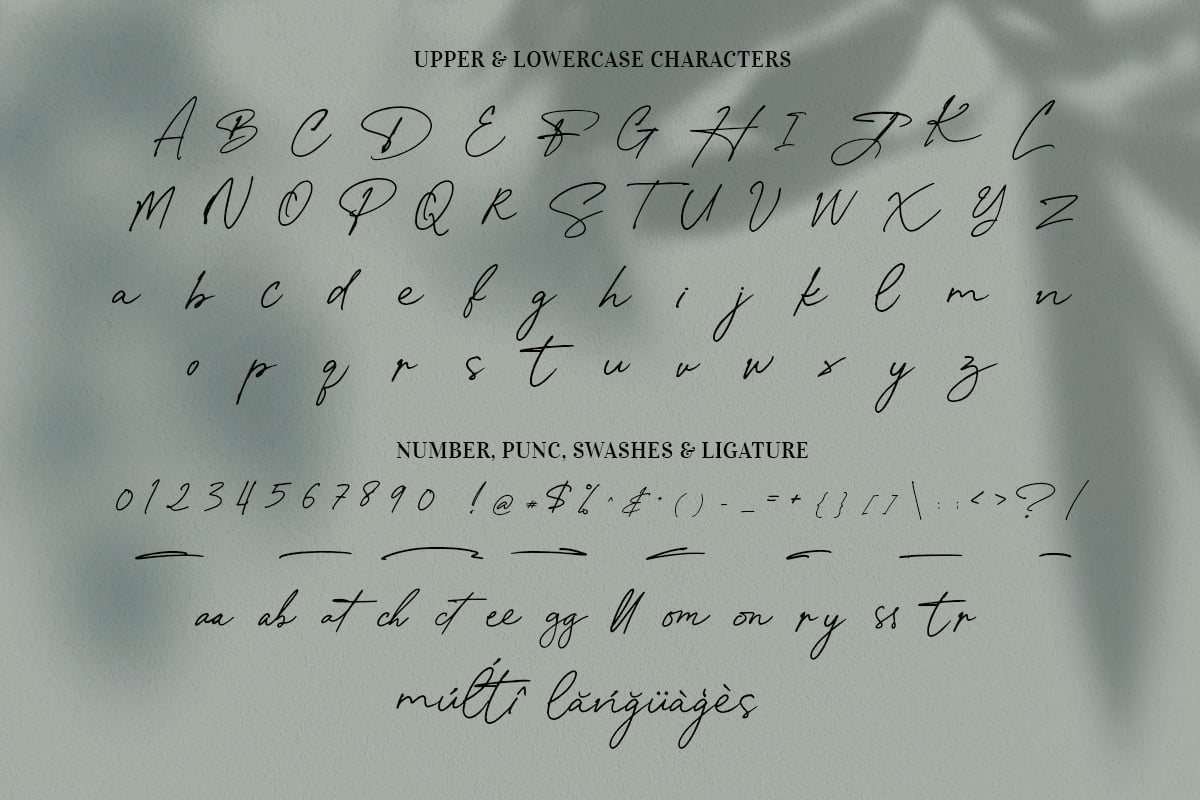 UPPER & LOWERCASE CHARACTERS
A B C D E F G H I J K L
M N O P Q R S T U V W X Y Z
a b c d e f g h i j k l m n
o p q r s t u v w x y z
NUMBER, PUNC, SWASHES & LIGATURE
0 1 2 3 4 5 6 7 8 9 0 ! @ # $ % ^ & * ( ) - _ = + { } [ ] \ : ; < > ? /
aa ab at ch ct ee gg ll om on ry ss tr